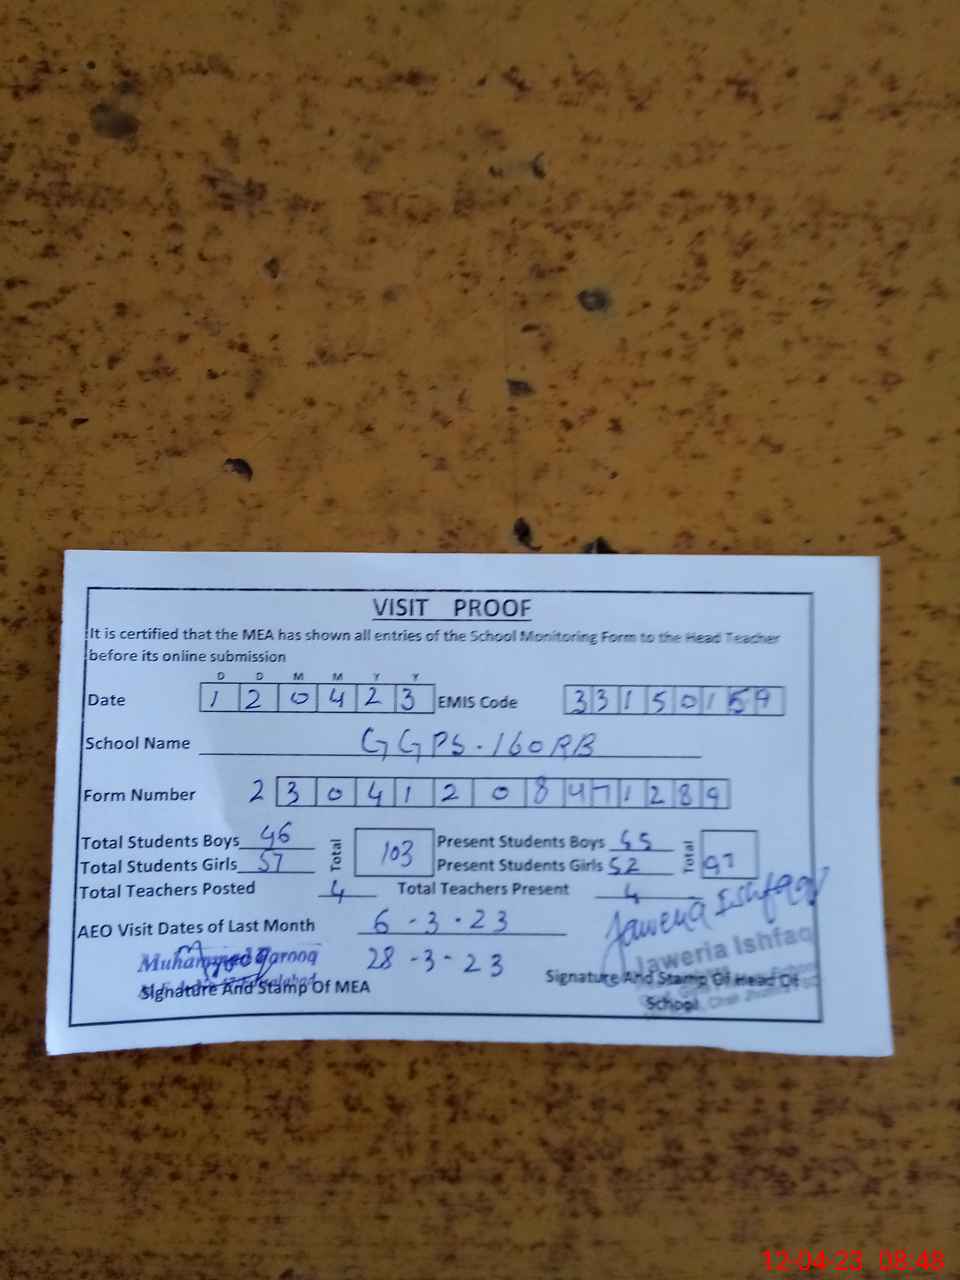 VISIT PROOF
It is certified that the MEA has shown all entries of the School Monitoring Form to the Head Teacher
before its online submission
D D M M Y Y
Date 1 2 0 4 2 3 EMIS Code 3 3 1 5 0 1 5 9
School Name GGPS. 160 RB
Form Number 2 3 0 4 1 2 0 8 4 7 1 2 8 9
Total Students Boys 46 Total 103 Present Students Boys 45 Total 97
Total Students Girls 57 Present Students Girls 52
Total Teachers Posted 4 Total Teachers Present 4
AEO Visit Dates of Last Month 6 - 3 - 23
Jaweria Ishfaq
28 - 3 - 23
Muhammad Farooq
Jaweria Ishfaq
Signature And Stamp Of MEA
Signature And Stamp Of Head Of
School
12-04-23 08:48